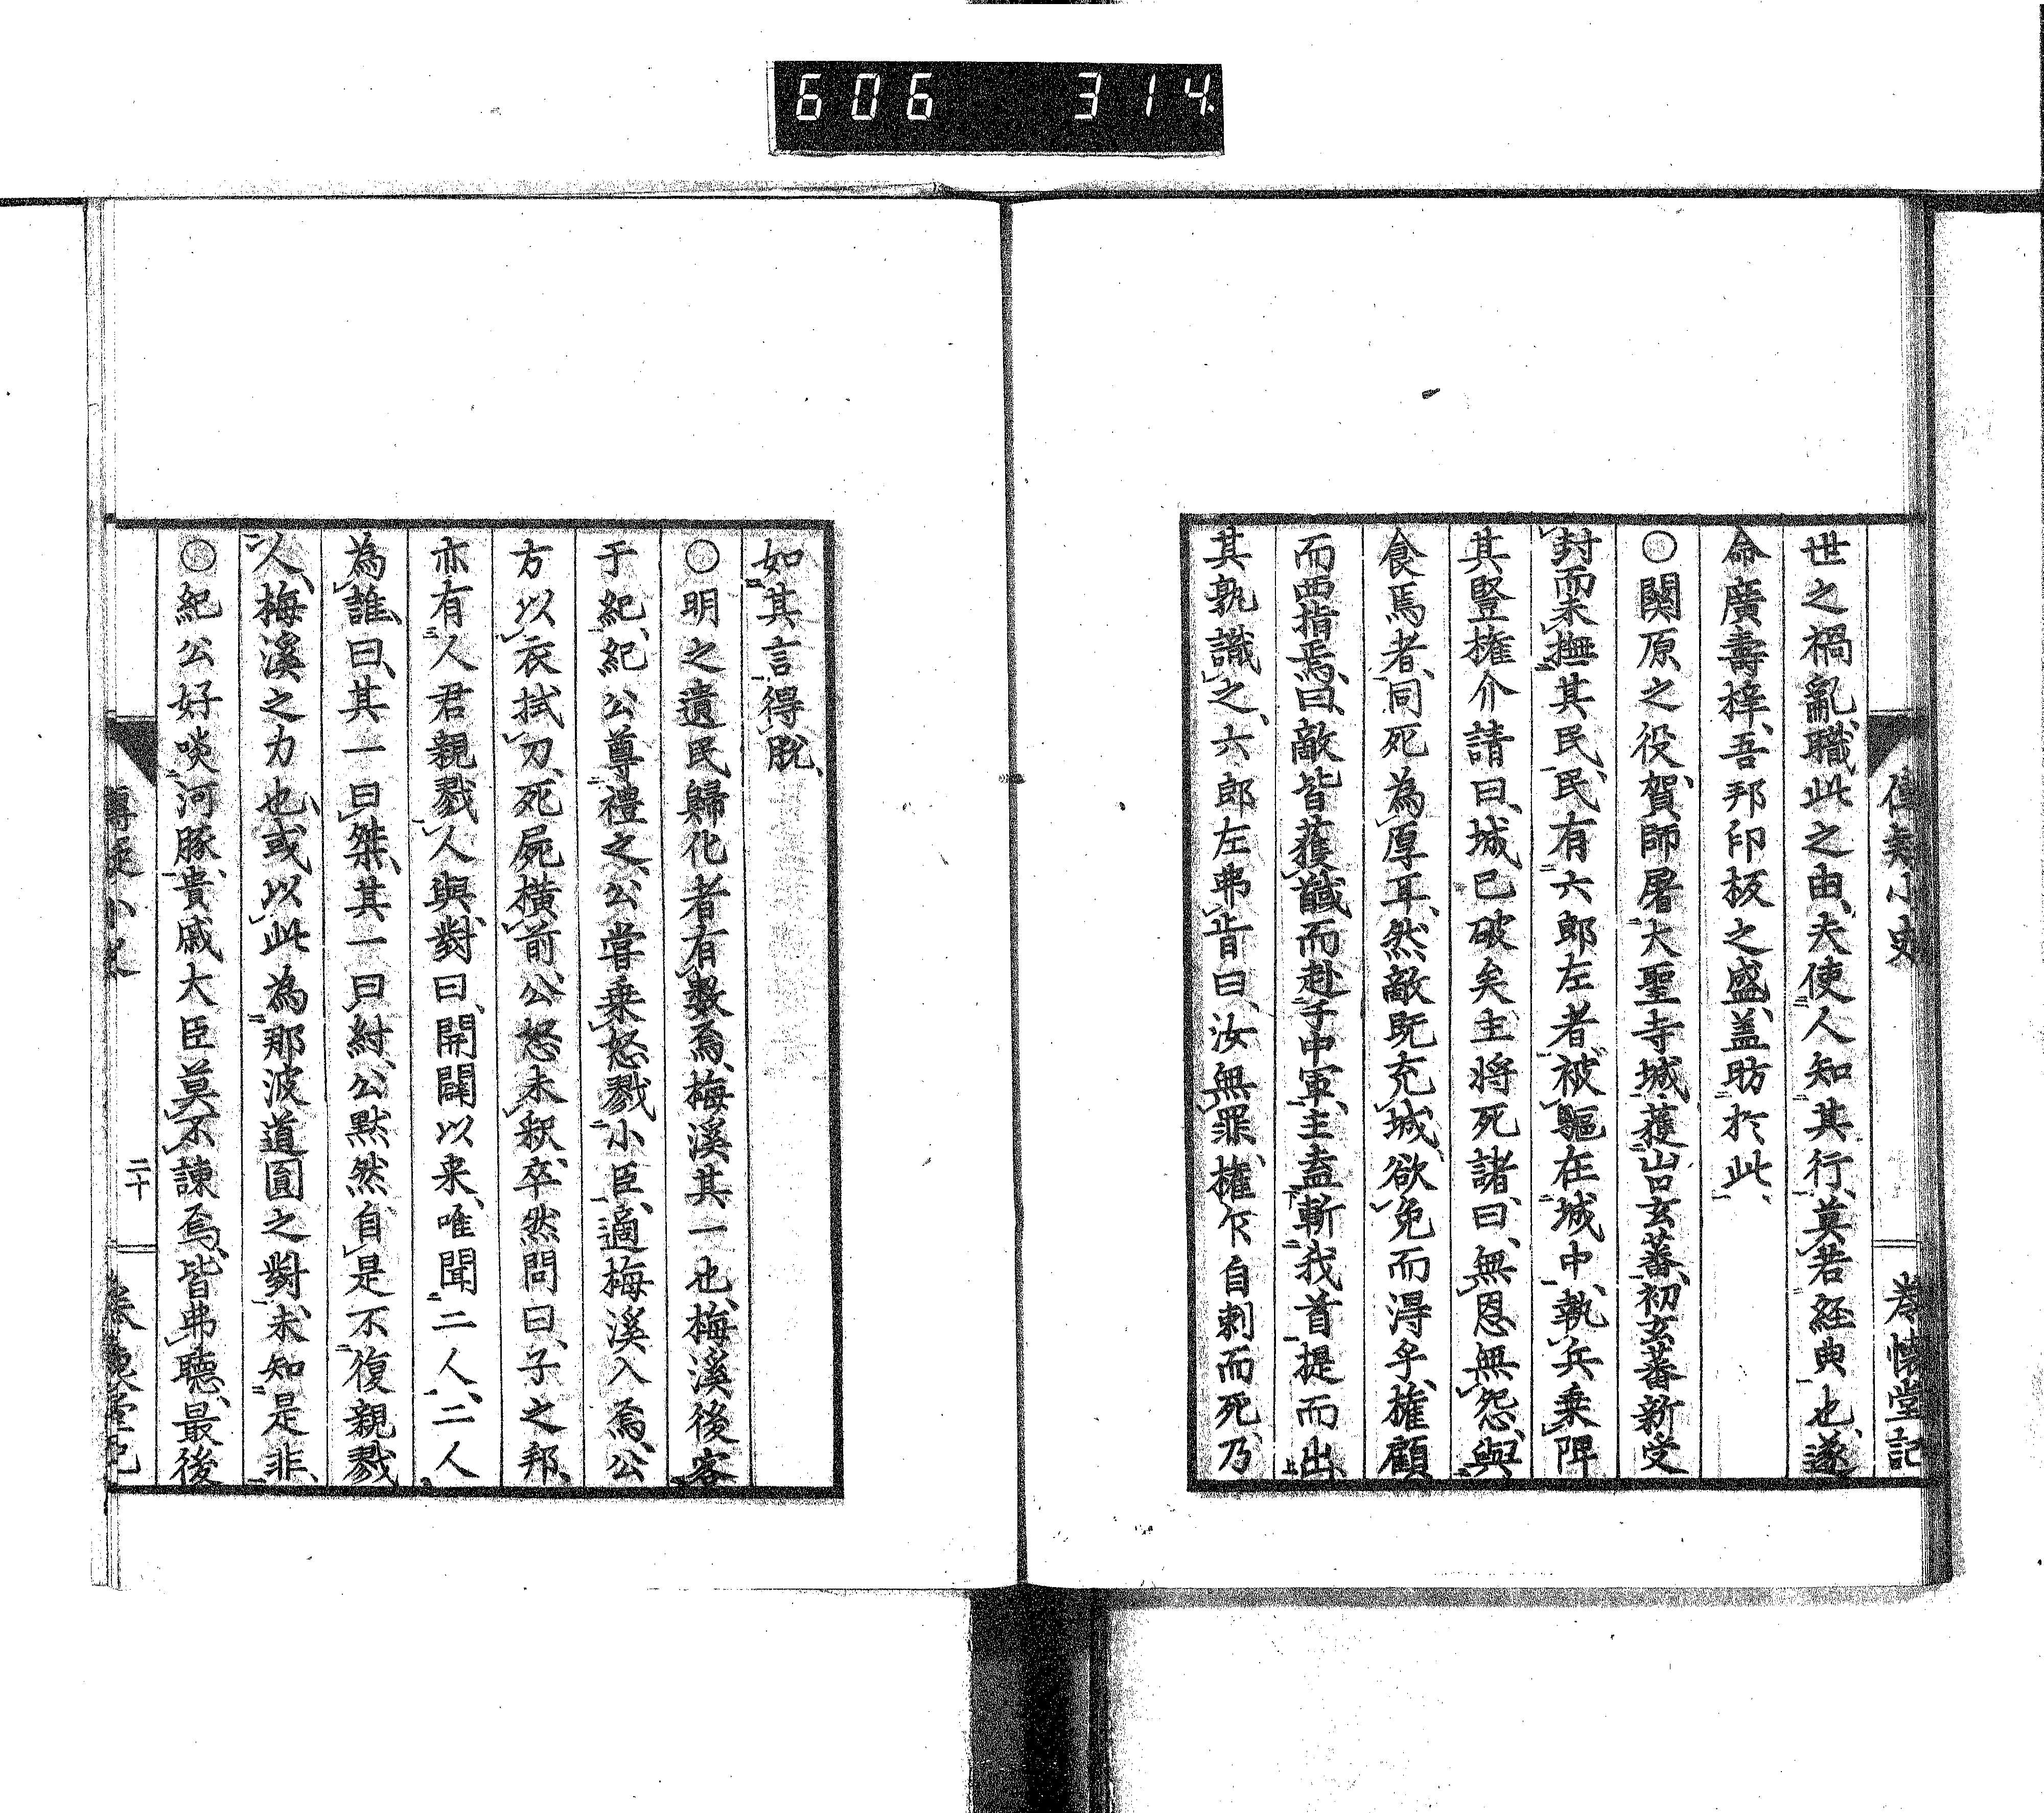 606 314
世之禍亂、職此之由、夫使人知其行、莫若経典也、遂
命廣壽梓、吾邦印板之盛、盖昉於此、
〇関原之役、賀師屠大聖寺城、獲山口玄蕃、初玄蕃新受
封而未撫其民、民有六郎左者、被驅在城中、執兵乗陴
其豎權介請曰、城已破矣、主将死諸、曰、無恩無怨、與
食焉者、同死為厚耳、然敵既充城、欲免而得乎、權顧
而西指焉、曰、敵皆獲馘而赴于中軍、主盍斬我首提而出、
其孰識之、六郎左弗肯曰、汝無罪、權乍自刺而死、乃
如其言得脱、
〇明之遺民歸化者有數焉、梅溪其一也、梅溪後客
于紀、紀公尊禮之、公嘗乗怒戮小臣、適梅溪入焉、公
方以衣拭刀、死屍横前、公怒未釈、卒然問曰、子之邦、
亦有人君親戮人與、對曰、開闢以来、唯聞二人、二人
為誰、曰、其一曰桀、其一曰紂、公黙然、自是不復親戮
人、梅溪之力也、或以此為那波道圓之對、未知是非、
〇紀公好啖河豚、貴戚大臣莫不諌焉、皆弗聽、最後
二十
小史
懐堂記